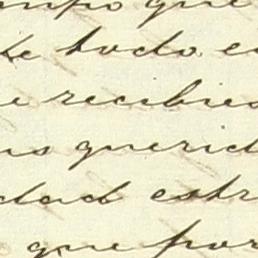 mpo que
te todo e
e recibies
us querid
dad estr
que por